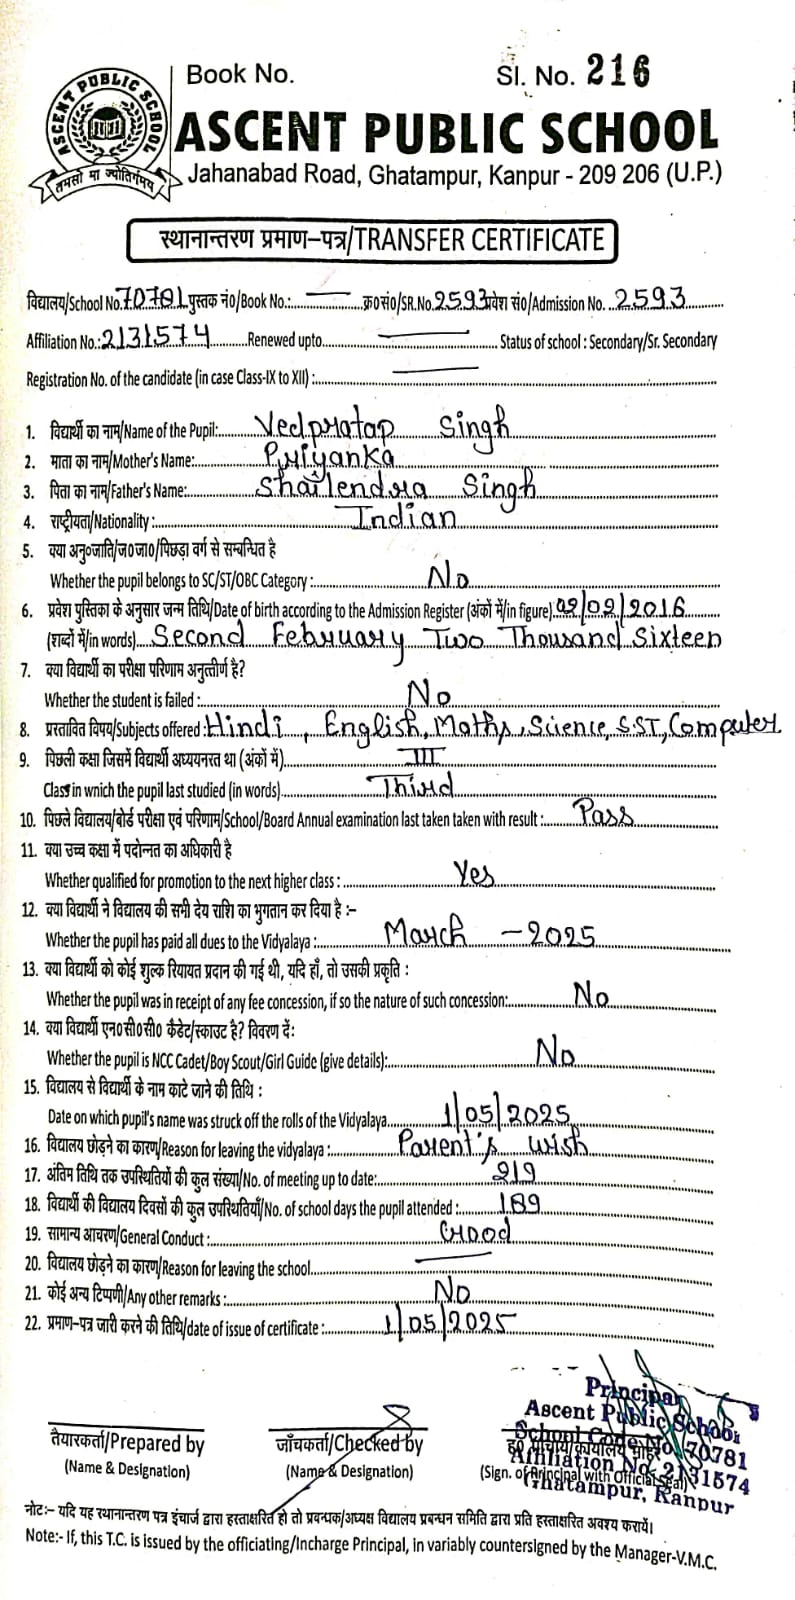 Book No.
Sl. No. 216
ASCENT PUBLIC SCHOOL
तमसो मा ज्योतिर्गमय
ASCENT PUBLIC SCHOOL
Jahanabad Road, Ghatampur, Kanpur - 209 206 (U.P.)
स्थानान्तरण प्रमाण-पत्र/TRANSFER CERTIFICATE
विद्यालय/School No. 70781 पुस्तक नं०/Book No.: — क्र०सं०/SR.No. 2593 प्रवेश सं०/Admission No. 2593
Affiliation No.: 2131574 Renewed upto — Status of school : Secondary/Sr. Secondary
Registration No. of the candidate (in case Class-IX to XII) : —
1. विद्यार्थी का नाम/Name of the Pupil: Vedpratap Singh
2. माता का नाम/Mother's Name: Priyanka
3. पिता का नाम/Father's Name: Shailendra Singh
4. राष्ट्रीयता/Nationality : Indian
5. क्या अनु०जाति/ज०जा०/पिछड़ा वर्ग से सम्बन्धित है
Whether the pupil belongs to SC/ST/OBC Category : No
6. प्रवेश पुस्तिका के अनुसार जन्म तिथि/Date of birth according to the Admission Register (अंकों में/in figure) 02/02/2016
(शब्दों में/in words) Second February Two Thousand Sixteen
7. क्या विद्यार्थी का परीक्षा परिणाम अनुत्तीर्ण है?
Whether the student is failed : No
8. प्रस्तावित विषय/Subjects offered : Hindi, English, Maths, Science, SST, Computer
9. पिछली कक्षा जिसमें विद्यार्थी अध्ययनरत था (अंकों में) III
Class in wnich the pupil last studied (in words) Third
10. पिछले विद्यालय/बोर्ड परीक्षा एवं परिणाम/School/Board Annual examination last taken taken with result : Pass
11. क्या उच्च कक्षा में पदोन्नत का अधिकारी है
Whether qualified for promotion to the next higher class : Yes
12. क्या विद्यार्थी ने विद्यालय की सभी देय राशि का भुगतान कर दिया है :-
Whether the pupil has paid all dues to the Vidyalaya : March - 2025
13. क्या विद्यार्थी को कोई शुल्क रियायत प्रदान की गई थी, यदि हाँ, तो उसकी प्रकृति :
Whether the pupil was in receipt of any fee concession, if so the nature of such concession: No
14. क्या विद्यार्थी एन०सी०सी० कैडेट/स्काउट है? विवरण दें:
Whether the pupil is NCC Cadet/Boy Scout/Girl Guide (give details): No
15. विद्यालय से विद्यार्थी के नाम काटे जाने की तिथि :
Date on which pupil's name was struck off the rolls of the Vidyalaya 1/05/2025
16. विद्यालय छोड़ने का कारण/Reason for leaving the vidyalaya : Parent's wish
17. अंतिम तिथि तक उपस्थितियों की कुल संख्या/No. of meeting up to date: 219
18. विद्यार्थी की विद्यालय दिवसों की कुल उपस्थितियाँ/No. of school days the pupil attended : 189
19. सामान्य आचरण/General Conduct : Good
20. विद्यालय छोड़ने का कारण/Reason for leaving the school —
21. कोई अन्य टिप्पणी/Any other remarks : No
22. प्रमाण-पत्र जारी करने की तिथि/date of issue of certificate : 1/05/2025
Principal
Ascent Public School
School Code No. 70781
Affiliation No. 2131574
Ghatampur, Kanpur
तैयारकर्ता/Prepared by
(Name & Designation)
जाँचकर्ता/Checked by
(Name & Designation)
(Sign. of Principal with Official Seal)
नोट:- यदि यह स्थानान्तरण पत्र इंचार्ज द्वारा हस्ताक्षरित हो तो प्रबन्धक/अध्यक्ष विद्यालय प्रबन्धन समिति द्वारा प्रति हस्ताक्षरित अवश्य करायें।
Note:- If, this T.C. is issued by the officiating/Incharge Principal, in variably countersigned by the Manager-V.M.C.